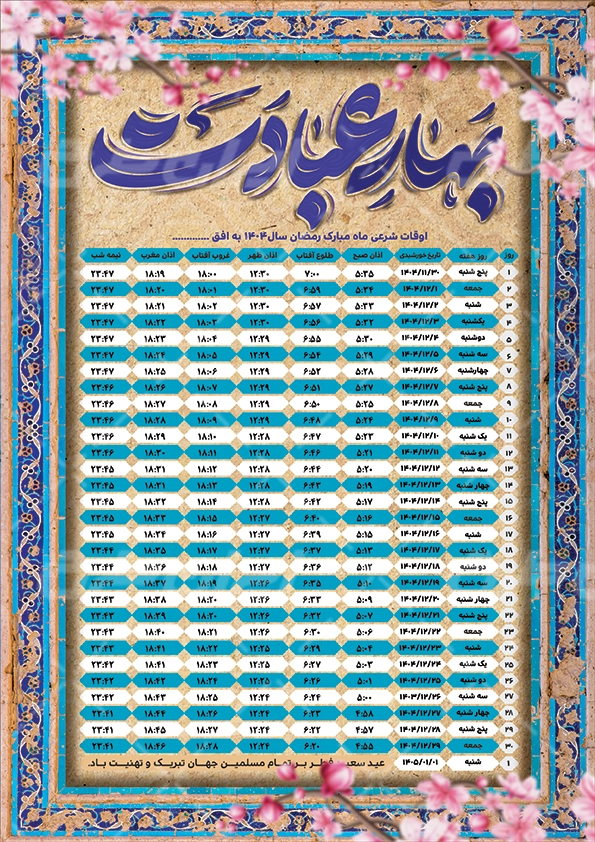 بهار عبادت
اوقات شرعی ماه مبارک رمضان سال ۱۴۰۴ به افق .............
روز روز هفته تاریخ خورشیدی اذان صبح طلوع آفتاب اذان ظهر غروب آفتاب اذان مغرب نیمه شب
۱ پنج شنبه ۱۴۰۴/۱۱/۳۰ ۵:۳۵ ۷:۰۰ ۱۲:۳۰ ۱۸:۰۰ ۱۸:۱۹ ۲۳:۴۷
۲ جمعه ۱۴۰۴/۱۲/۱ ۵:۳۴ ۶:۵۹ ۱۲:۳۰ ۱۸:۰۱ ۱۸:۲۰ ۲۳:۴۷
۳ شنبه ۱۴۰۴/۱۲/۲ ۵:۳۳ ۶:۵۷ ۱۲:۳۰ ۱۸:۰۲ ۱۸:۲۱ ۲۳:۴۷
۴ یکشنبه ۱۴۰۴/۱۲/۳ ۵:۳۲ ۶:۵۶ ۱۲:۳۰ ۱۸:۰۳ ۱۸:۲۲ ۲۳:۴۷
۵ دوشنبه ۱۴۰۴/۱۲/۴ ۵:۳۰ ۶:۵۵ ۱۲:۲۹ ۱۸:۰۴ ۱۸:۲۳ ۲۳:۴۷
۶ سه شنبه ۱۴۰۴/۱۲/۵ ۵:۲۹ ۶:۵۴ ۱۲:۲۹ ۱۸:۰۵ ۱۸:۲۴ ۲۳:۴۷
۷ چهارشنبه ۱۴۰۴/۱۲/۶ ۵:۲۸ ۶:۵۲ ۱۲:۲۹ ۱۸:۰۶ ۱۸:۲۵ ۲۳:۴۷
۸ پنج شنبه ۱۴۰۴/۱۲/۷ ۵:۲۷ ۶:۵۱ ۱۲:۲۹ ۱۸:۰۷ ۱۸:۲۶ ۲۳:۴۶
۹ جمعه ۱۴۰۴/۱۲/۸ ۵:۲۵ ۶:۵۰ ۱۲:۲۹ ۱۸:۰۸ ۱۸:۲۷ ۲۳:۴۶
۱۰ شنبه ۱۴۰۴/۱۲/۹ ۵:۲۴ ۶:۴۸ ۱۲:۲۹ ۱۸:۰۹ ۱۸:۲۸ ۲۳:۴۶
۱۱ یک شنبه ۱۴۰۴/۱۲/۱۰ ۵:۲۳ ۶:۴۷ ۱۲:۲۸ ۱۸:۱۰ ۱۸:۲۹ ۲۳:۴۶
۱۲ دو شنبه ۱۴۰۴/۱۲/۱۱ ۵:۲۱ ۶:۴۶ ۱۲:۲۸ ۱۸:۱۱ ۱۸:۳۰ ۲۳:۴۶
۱۳ سه شنبه ۱۴۰۴/۱۲/۱۲ ۵:۲۰ ۶:۴۴ ۱۲:۲۸ ۱۸:۱۲ ۱۸:۳۱ ۲۳:۴۵
۱۴ چهار شنبه ۱۴۰۴/۱۲/۱۳ ۵:۱۹ ۶:۴۳ ۱۲:۲۸ ۱۸:۱۳ ۱۸:۳۱ ۲۳:۴۵
۱۵ پنج شنبه ۱۴۰۴/۱۲/۱۴ ۵:۱۷ ۶:۴۲ ۱۲:۲۸ ۱۸:۱۴ ۱۸:۳۲ ۲۳:۴۵
۱۶ جمعه ۱۴۰۴/۱۲/۱۵ ۵:۱۶ ۶:۴۰ ۱۲:۲۷ ۱۸:۱۵ ۱۸:۳۳ ۲۳:۴۵
۱۷ شنبه ۱۴۰۴/۱۲/۱۶ ۵:۱۵ ۶:۳۹ ۱۲:۲۷ ۱۸:۱۶ ۱۸:۳۴ ۲۳:۴۵
۱۸ یک شنبه ۱۴۰۴/۱۲/۱۷ ۵:۱۳ ۶:۳۷ ۱۲:۲۷ ۱۸:۱۷ ۱۸:۳۵ ۲۳:۴۴
۱۹ دو شنبه ۱۴۰۴/۱۲/۱۸ ۵:۱۲ ۶:۳۶ ۱۲:۲۷ ۱۸:۱۸ ۱۸:۳۶ ۲۳:۴۴
۲۰ سه شنبه ۱۴۰۴/۱۲/۱۹ ۵:۱۰ ۶:۳۵ ۱۲:۲۶ ۱۸:۱۹ ۱۸:۳۷ ۲۳:۴۴
۲۱ چهار شنبه ۱۴۰۴/۱۲/۲۰ ۵:۰۹ ۶:۳۳ ۱۲:۲۶ ۱۸:۲۰ ۱۸:۳۸ ۲۳:۴۳
۲۲ پنج شنبه ۱۴۰۴/۱۲/۲۱ ۵:۰۷ ۶:۳۲ ۱۲:۲۶ ۱۸:۲۰ ۱۸:۳۹ ۲۳:۴۳
۲۳ جمعه ۱۴۰۴/۱۲/۲۲ ۵:۰۶ ۶:۳۰ ۱۲:۲۶ ۱۸:۲۱ ۱۸:۴۰ ۲۳:۴۳
۲۴ شنبه ۱۴۰۴/۱۲/۲۳ ۵:۰۴ ۶:۲۹ ۱۲:۲۵ ۱۸:۲۲ ۱۸:۴۱ ۲۳:۴۳
۲۵ یک شنبه ۱۴۰۴/۱۲/۲۴ ۵:۰۳ ۶:۲۷ ۱۲:۲۵ ۱۸:۲۳ ۱۸:۴۱ ۲۳:۴۲
۲۶ دو شنبه ۱۴۰۴/۱۲/۲۵ ۵:۰۱ ۶:۲۶ ۱۲:۲۵ ۱۸:۲۴ ۱۸:۴۲ ۲۳:۴۲
۲۷ سه شنبه ۱۴۰۳/۱۲/۲۶ ۵:۰۰ ۶:۲۴ ۱۲:۲۴ ۱۸:۲۵ ۱۸:۴۳ ۲۳:۴۲
۲۸ چهار شنبه ۱۴۰۴/۱۲/۲۷ ۴:۵۸ ۶:۲۳ ۱۲:۲۴ ۱۸:۲۶ ۱۸:۴۴ ۲۳:۴۱
۲۹ پنج شنبه ۱۴۰۴/۱۲/۲۸ ۴:۵۷ ۶:۲۲ ۱۲:۲۴ ۱۸:۲۷ ۱۸:۴۵ ۲۳:۴۱
۳۰ جمعه ۱۴۰۴/۱۲/۲۹ ۴:۵۵ ۶:۲۰ ۱۲:۲۴ ۱۸:۲۸ ۱۸:۴۶ ۲۳:۴۱
۱ شنبه ۱۴۰۵/۰۱/۰۱ عید سعید فطر بر تمام مسلمین جهان تبریک و تهنیت باد.